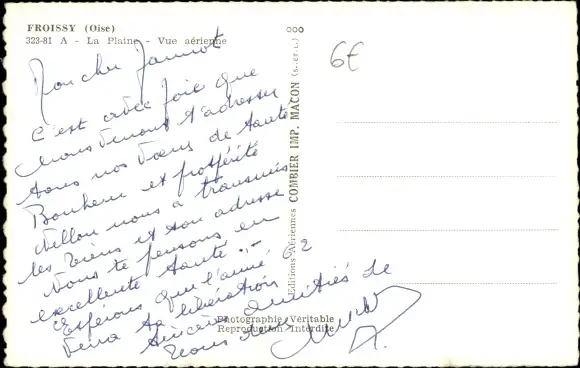 FROISSY (Oise)
323-81 A - La Plaine - Vue aérienne
Mon cher Jannot
C'est avec joie que
nous venons t'adresser
tous nos vœux de santé
Bonheur et prospérité
nous a transmis
les tiens et son adresse
Nous te pensons en
excellente santé
Espérons que l'année 62
verra ta libération
Sincères amitiés de
nous deux
Editions Aériennes COMBIER IMP. MACON (S.-ET-L.)
6€
Photographie Véritable
Reproduction Interdite